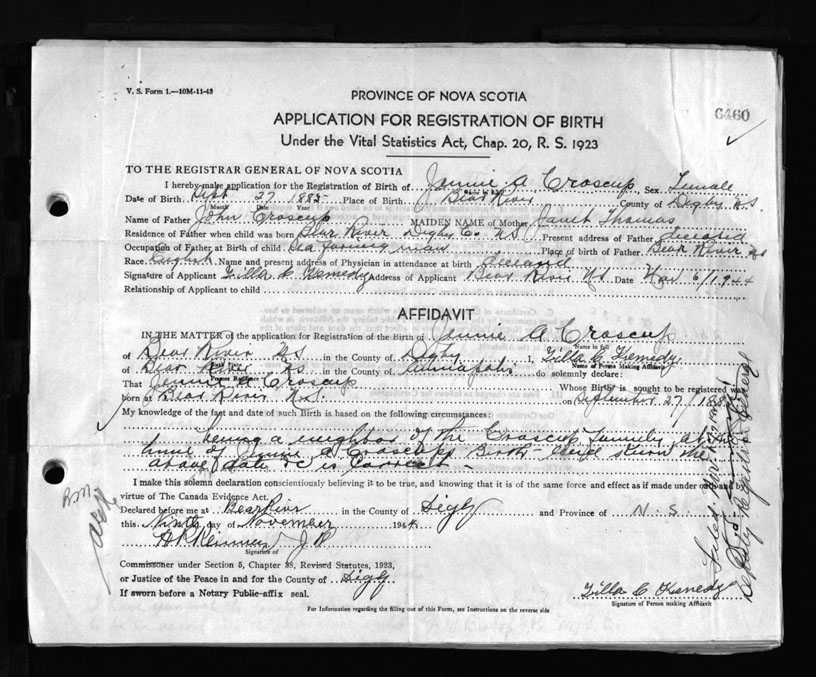 V. S. Form 1.—10M-11-43
PROVINCE OF NOVA SCOTIA
6460
APPLICATION FOR REGISTRATION OF BIRTH
Under the Vital Statistics Act, Chap. 20, R. S. 1923
TO THE REGISTRAR GENERAL OF NOVA SCOTIA
I hereby make application for the Registration of Birth of Jennie A Croscup, Sex Female
Date of Birth Sept 27 188 Place of Birth Bear River County of Digby N S
Month Date Year
Name of Father John Croscup MAIDEN NAME of Mother Janet Thomas
Residence of Father when child was born Bear River Digby Co NS Present address of Father deceased
Occupation of Father at Birth of child man Place of birth of Father Bear River NS
Race English Name and present address of Physician in attendance at birth deceased
Signature of Applicant Zilla C Kennedy Address of Applicant Bear River N.S. Date Nov 6/1944
Relationship of Applicant to child
AFFIDAVIT
IN THE MATTER of the application for Registration of the Birth of Jennie A Croscup
Name in full
of Bear River N.S. in the County of Digby I, Zilla C Kennedy
Name of Person Making Affidavit
of Bear River N.S. in the County of Annapolis do solemnly declare:
That Jennie A Croscup Whose Birth is sought to be registered was
born at Bear River N.S. on September 27/188
My knowledge of the fact and date of such Birth is based on the following circumstances:
being a neighbor of the Croscup Family, at the
time of Jennie A Croscups Birth - and the
above date is correct -
I make this solemn declaration conscientiously believing it to be true, and knowing that it is of the same force and effect as if made under oath and by
virtue of The Canada Evidence Act.
Declared before me at Bear River in the County of Digby and Province of N. S.
this Ninth day of November 1944
J P
Signature of
Commissioner under Section 5, Chapter 38, Revised Statutes, 1923,
or Justice of the Peace in and for the County of Digby
If sworn before a Notary Public-affix seal.
Zilla C Kennedy
Signature of Person making Affidavit
For Information regarding the filling out of this Form, see Instructions on the reverse side
Filed
Deputy Registrar General